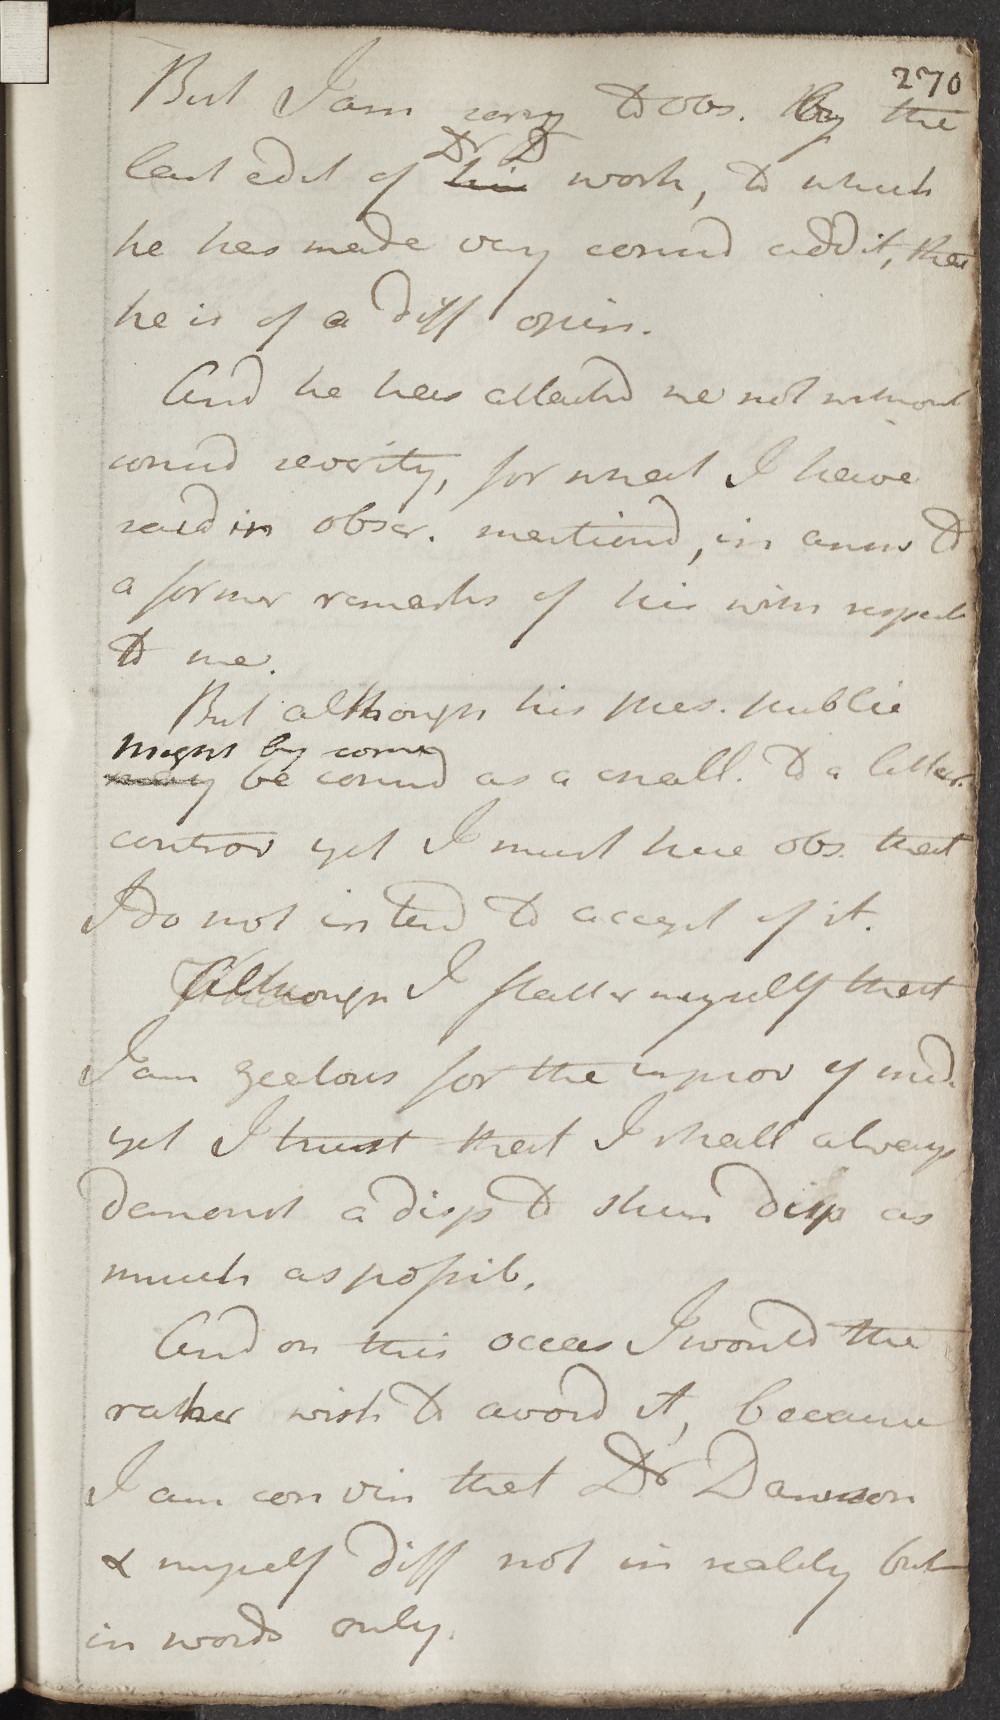 270
But I am sorry to obs. by the
Dr D
last edit of his work, to which
he has made very consid addit, that
he is of a diff opin.
And he has attackd me not without
consid severity, for what I have
said in obser. mentiond, in answ to
a former remarks of his with respect
to me.
But although his pres. public
might by some
may be consid as a chall. to a litter.
controv yet I must here obs. that
I do not intend to accept of it.
Although I flatter myself that
I am zealous for the improv of med.
yet I trust that I shall always
demonst a disp to shun disp as
much as possib.
And on this occas I would the
rather wish to avoid it, because
I am convin that Dr Dawson
& myself diff not in reality but
in words only.